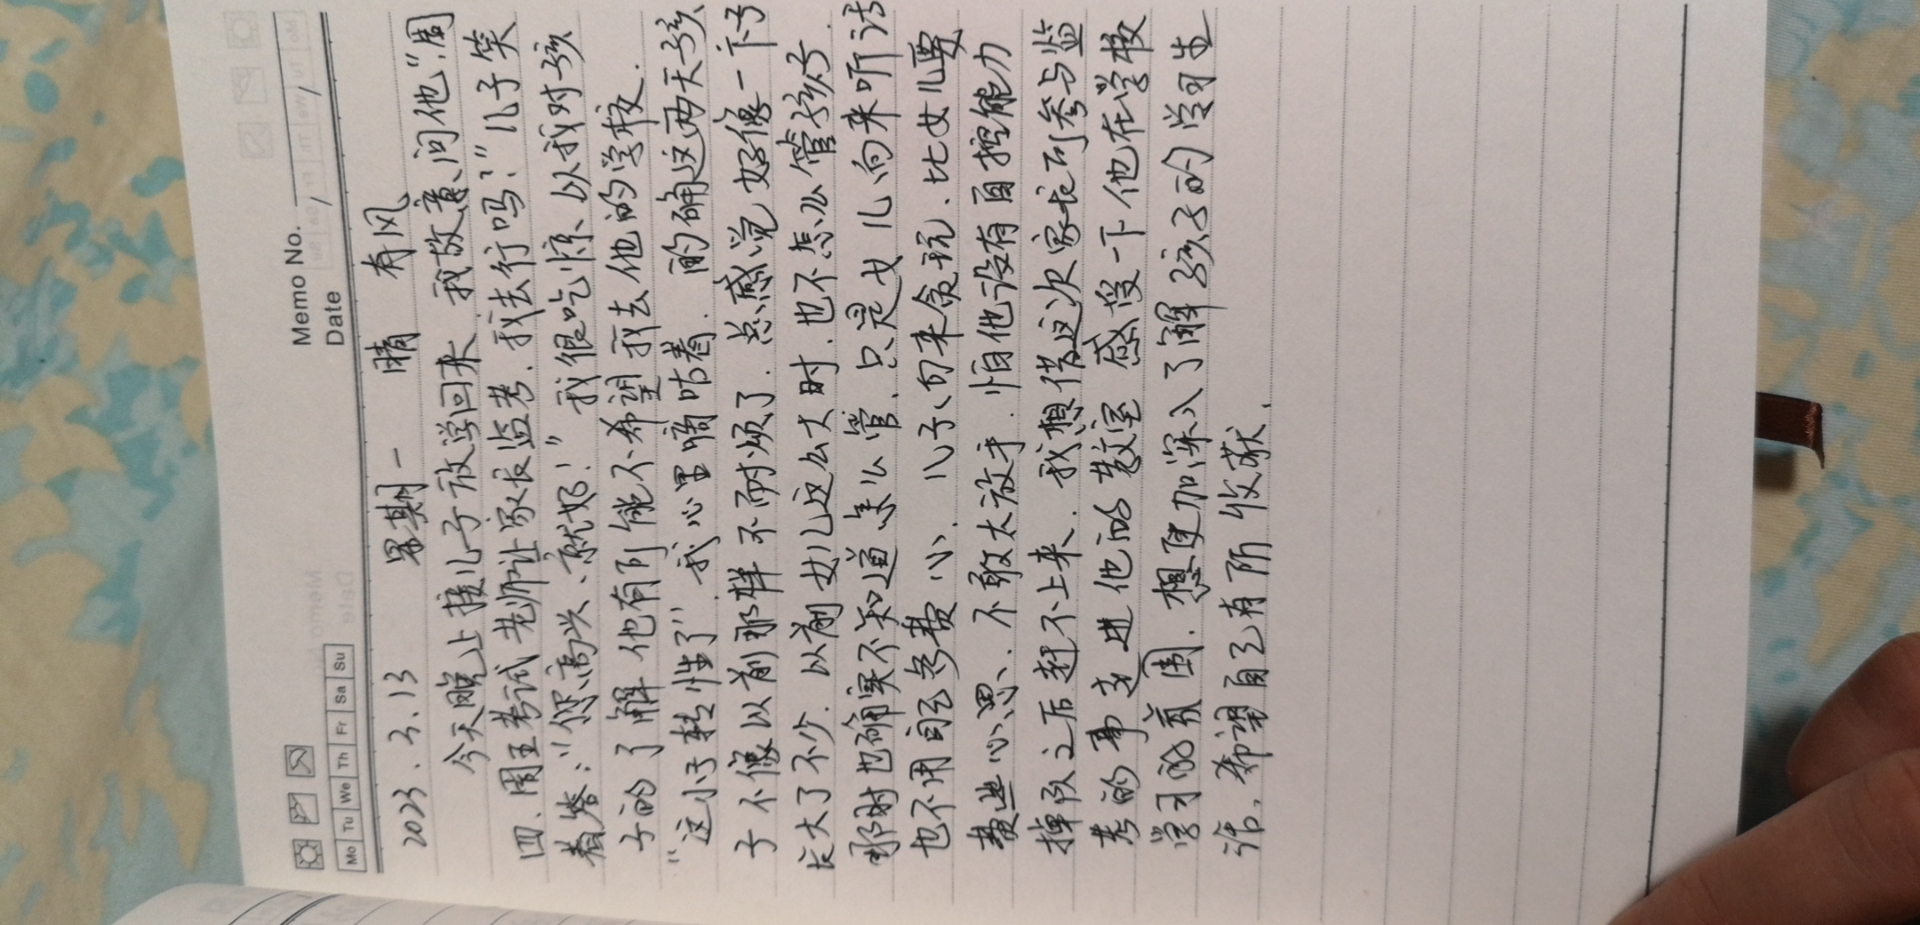 Memo No.
Date
Mo Tu We Th Fr Sa Su
2023.3.13 星期一 晴 有风
今天晚上接儿子放学回来,我故意问他"周
四、周五考试老师让家长监考,我去行吗?"儿子笑
着答:"你高兴、就好!"我很吃惊,以我对孩
子的了解他有可能不希望我去他的学校.
"这小子转性了"我心里嘀咕着.的确这两天孩
子不像以前那样不耐烦了.总感觉好像一下子
长大了不少.以前女儿这么大时.也不怎么管孩子.
那时也确实不知道怎么管,只是女儿向来听话
也不用自己多费心.儿子向来贪玩.比女儿要
费些心思、不敢太放手.怕他没有自控能力
掉队之后赶不上来.我想借这次家长可参与监
考的事走进他的教室感受一下他在学校
学习的氛围.想更加深入了解孩子的学习生
活.希望自己有所收获.